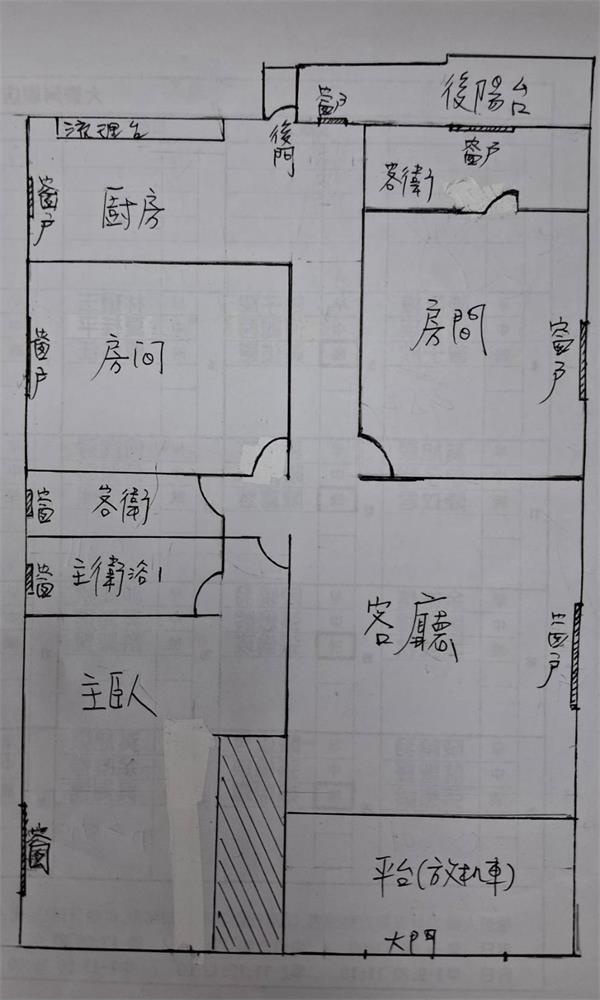 後陽台
窗戶
流理台
後門
窗戶
客衛
窗戶
廚房
房間
窗戶
房间
窗户
窗
客衛
窗
主衛浴
客廳
窗戶
主臥
窗
平台(放机車)
大門